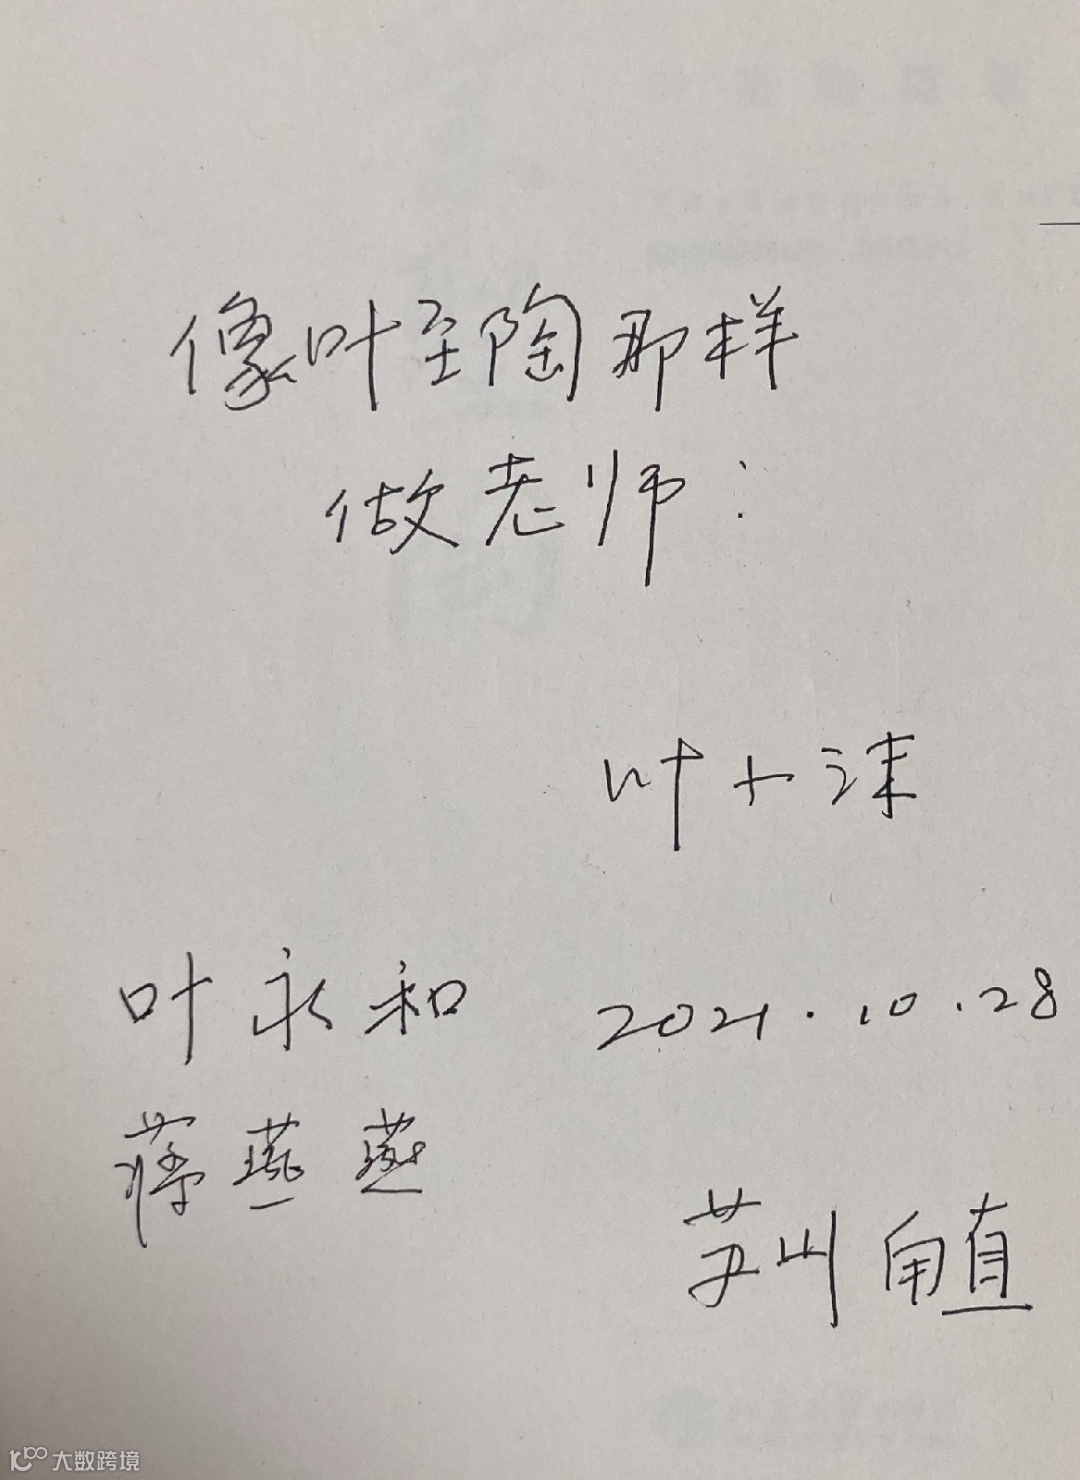 像叶圣陶那样
做老师！
叶小沫
叶永和 2021.10.28
蒋燕燕
苏州甪直
大数跨境